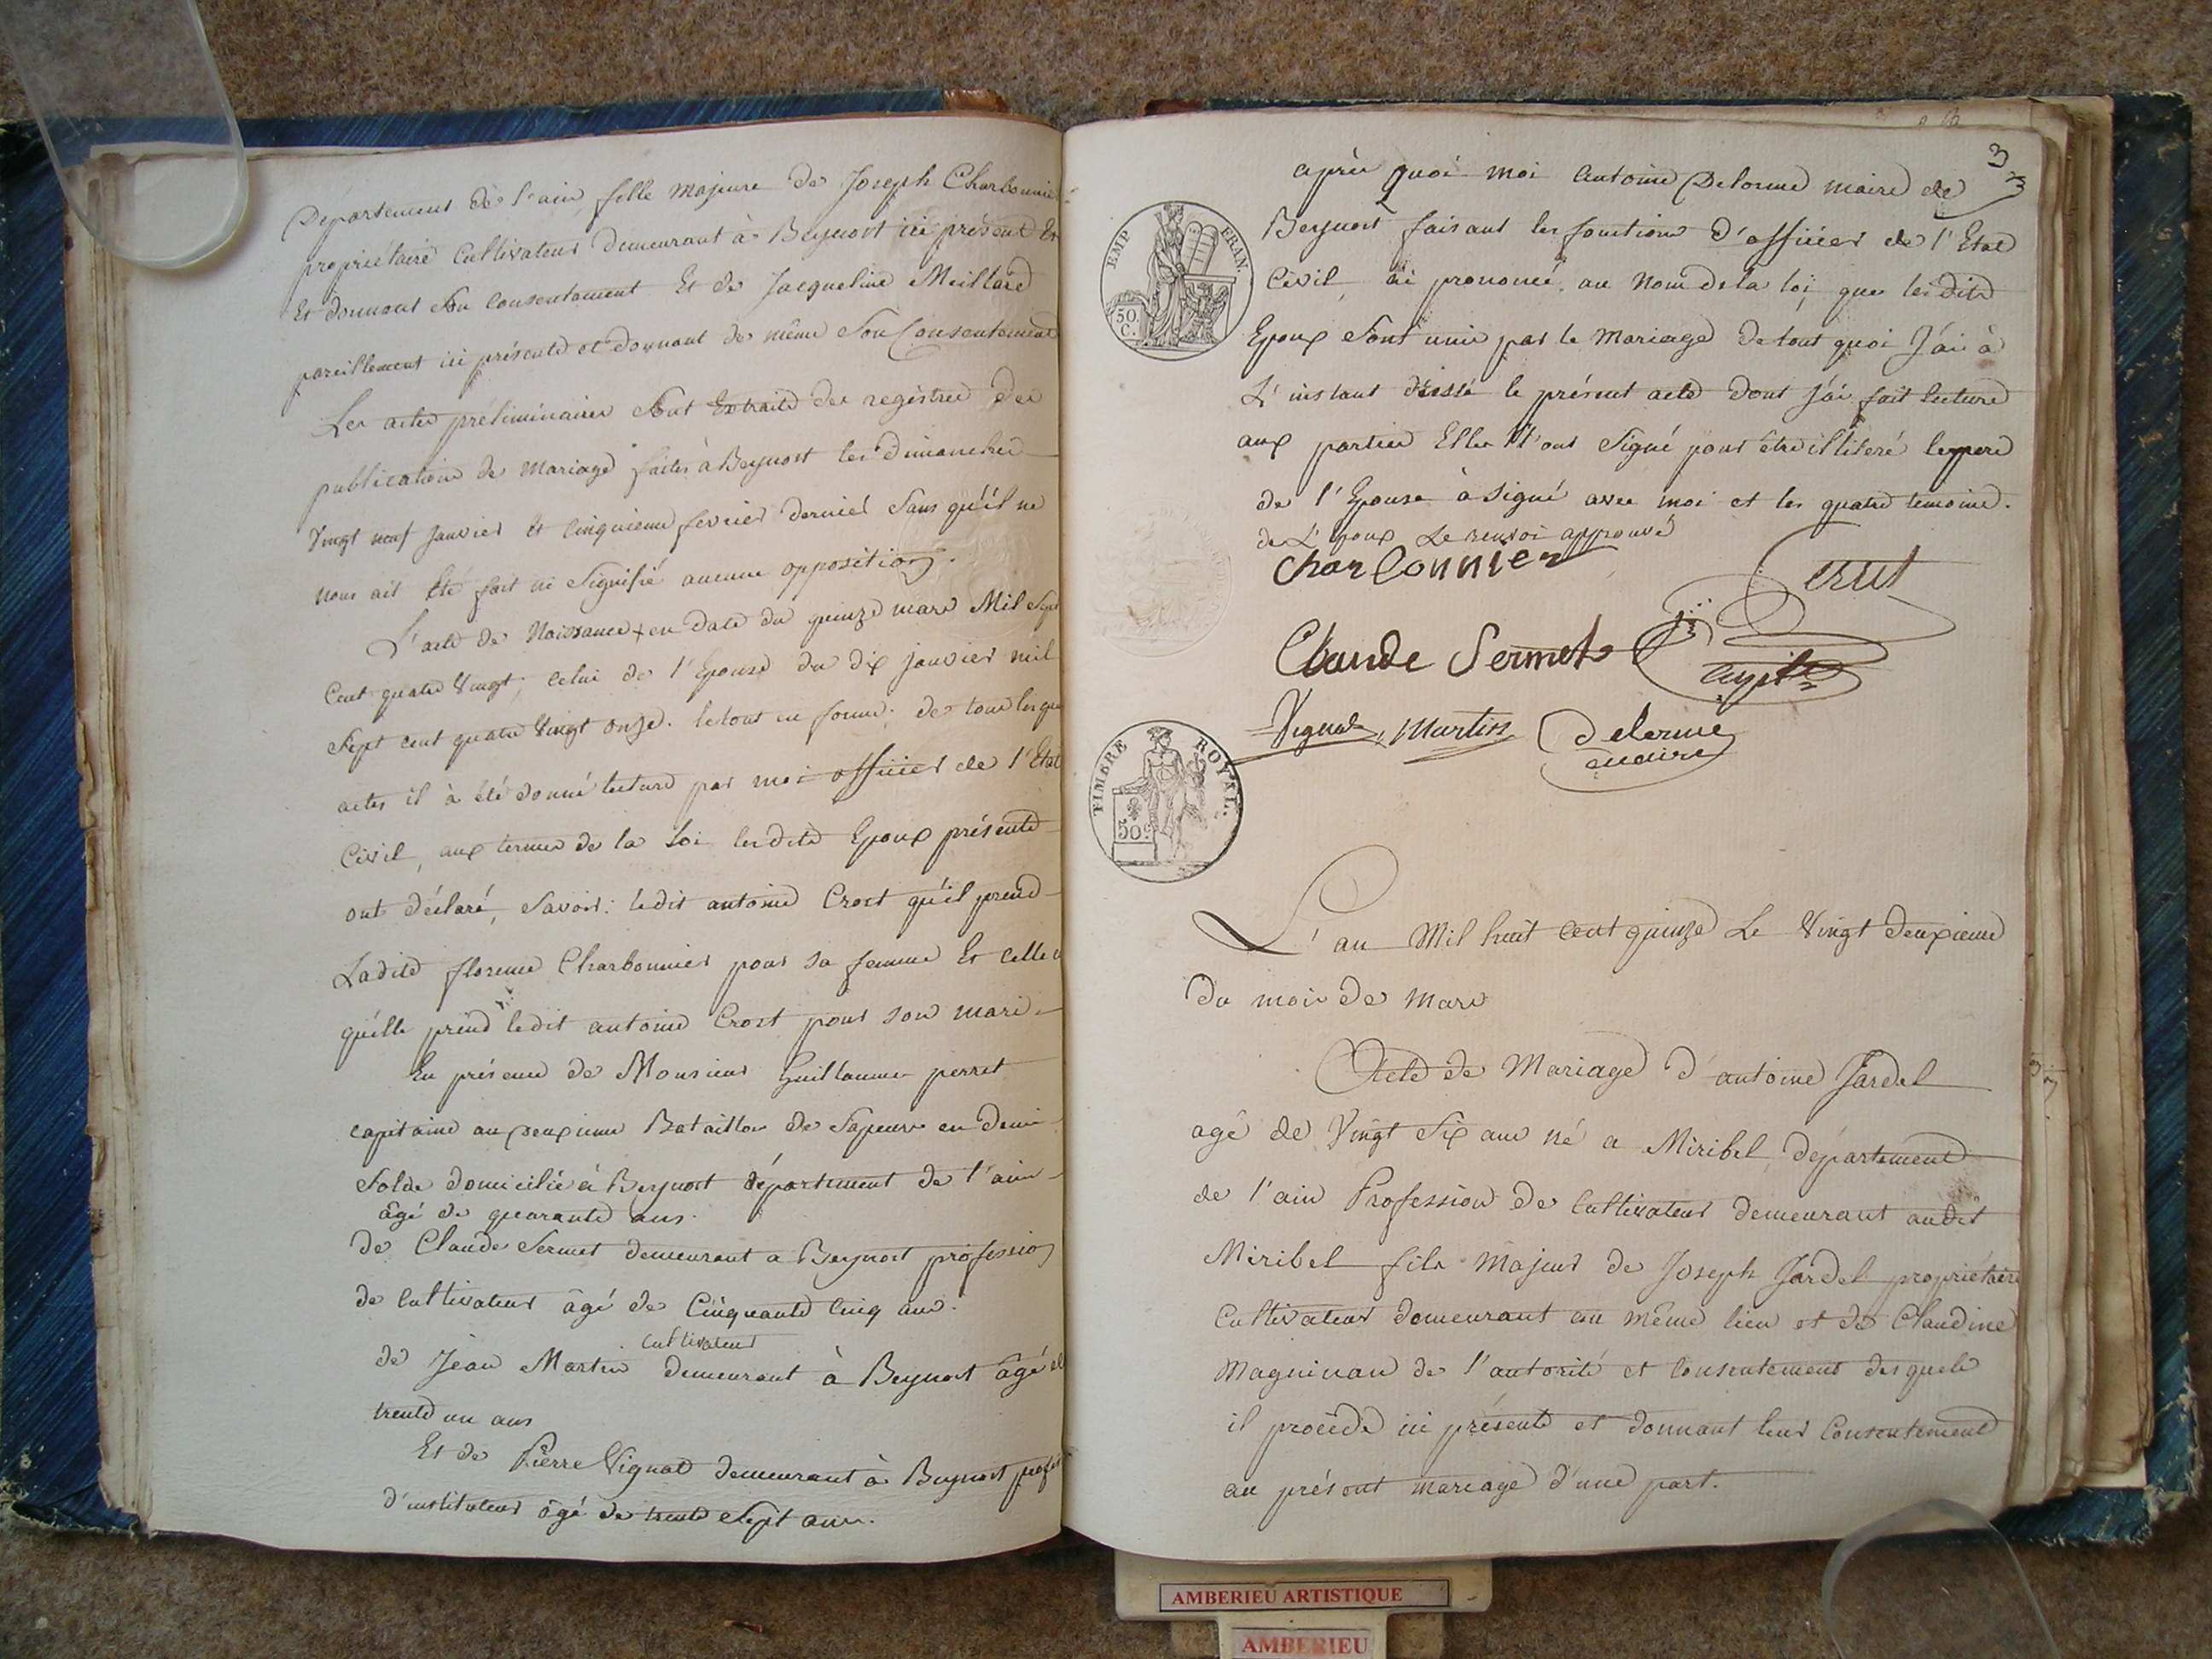 Departement de l'ain, fille majeure de Joseph Charbonnier
propriétaire Cultivateur demeurant à Beynost ici présent Et
Et donnant Son Consentement Et de Jacqueline Meillard
pareillement ici présente et donnant de même Son Consentement
Les actes préliminaires Sont Extraits des registres des
publications de Mariage faites à Beynost les dimanches
Vingt neuf Janvier Et Cinquieme fevrier dernier Sans qu'il ne
nous ait Eté fait ni Signifié aucune opposition.
L'acte de Naissance + en date du quinze mars Mil Sept
Cent quatre Vingt, Celui de l'Epouse du dix janvier mil
Sept cent quatre Vingt onze. le tout en forme, de tous lesquels
actes il à été donné lecture par moi officier de l'Etat
Civil, aux termes de la Loi lesdits Epoux présents
ont déclaré, Savoir: ledit antoine Crost qu'il prend
Ladite florence Charbonnier pour sa femme Et celle ci
qu'elle prend ledit antoine Crost pour son mari
En présence de Monsieur Guillaume perret
capitaine au Deuxieme Bataillon de Sapeurs en demi
Solde domicilié à Beynost département de l'ain
âgé de quarante ans.
de Claude Sermet demeurant a Beynost profession
de Cultivateur âgé de Cinquante Cinq ans.
cultivateur
de Jean Martin demeurant à Beynost âgé de
trente un ans
Et de Pierre Vignat demeurant à Beynost
d'instituteur âgé de trente Sept ans.
3
après quoi moi Antoine Delorme maire de
Beynost faisant les fonctions d'officier de l'Etat
Civil, ai prononcé, au Nom de la loi, que lesdits
Epoux Sont unis par le Mariage de tout quoi J'ai à
L'instant dressé le présent acte dont j'ai fait lecture
aux parties Elles N'ont Signé pour être illiteré le pere
de l'Epouse à Signé avec moi et les quatre temoins.
de L'Epoux Le renvoi approuvé
Charbonnier
Perret
Claude Sermet
capit
Vignat Martin Delorme
maire
EMP FRAN.
50. C.
TIMBRE ROYAL.
50c
L'an Mil huit cent quinze Le Vingt deuxieme
du mois de Mars
Acte de Mariage d'antoine Jardel
agé de Vingt Six ans né a Miribel, département
de l'ain Profession de Cultivateur demeurant audit
Miribel fils Majeur de Joseph Jardel propriétaire
Cultivateur demeurant au même lieu et de Claudine
Magninan de l'autorité et Consentement desquels
il procède ici présents et donnant leur Consentement
au présent mariage d'une part.
AMBERIEU ARTISTIQUE
AMBERIEU